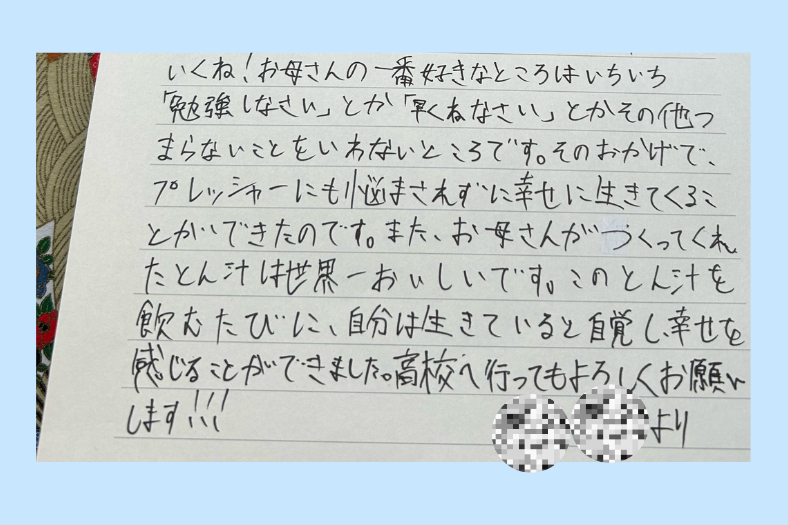 いくね!お母さんの一番好きなところはいちいち
「勉強しなさい」とか「早くねなさい」とかその他つ
まらないことをいわないところです。そのおかげで、
プレッシャーにも悩まされずに幸せに生きてくるこ
とかいできたのです。また、お母さんがつくってくれ
たとん汁は世界一おいしいです。このとん汁を
飲むたびに、自分は生きていると自覚し、幸せを
感じることができました。高校へ行ってもよろしくお願い
します!!!
より